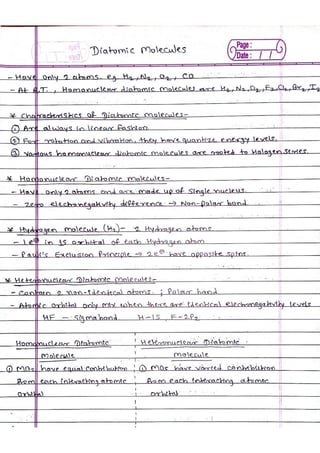 Diatomic Molecules
Page:
Date: / /
- Have only 2 atoms. eg H2, N2, O2, CO
- At R.T., Homonuclear diatomic molecules are H2, N2, O2, F2, Cl2, Br2, I2
* Characteristics of Diatomic molecules-
① Are always in linear fashion
② For rotation and vibration, they have quantize energy levels.
③ Various homonuclear diatomic molecules are rooted to Halogen series.
* Homonuclear Diatomic molecules-
- Have only 2 atoms and are made up of single nucleus.
- Zero electronegativity difference → Non-polar bond
* Hydrogen molecule (H2)- 2 Hydrogen atoms
- 1e⊖ in 1S orbital of each Hydrogen atom
- Pauli's Exclusion Principle → 2e⊖ have opposite spins.
* Heteronuclear Diatomic molecules-
- Contain 2 non-identical atoms ; Polar bond
- Atomic orbital only mix when there are identical electronegativity levels
HF - Sigma bond H-1S F-2Pz
Homonuclear Diatomic Heteronuclear Diatomic
Molecule Molecule
① MOs have equal contribution ① MOs have varied contribution
from each interacting atomic from each interacting atomic
orbital orbital